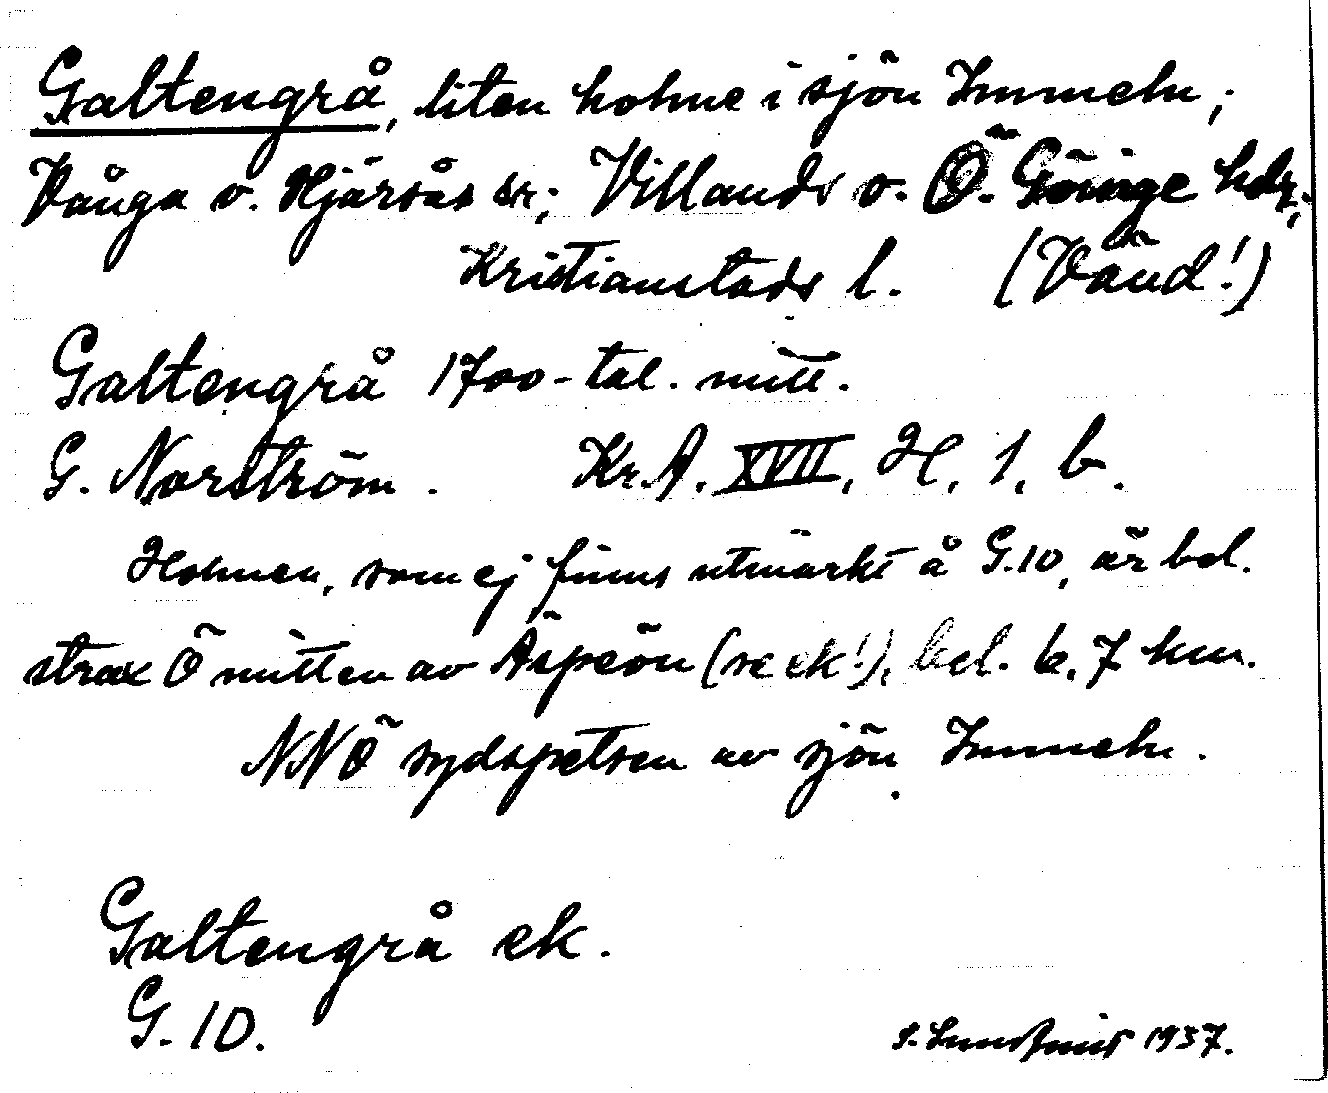 Galtengrå, liten holme i sjön Immeln;
Vånga o. Hjärsås sn; Villands o. Ö. Göinge hdr;
Kristianstads l. (Vänd!)
Galtengrå 1700-tal. mitt.
G. Norström. Kr.A. XVII, H, 1, b.
Holmen, som ej finns utmärkt å G.10, är bel.
strax Ö mitten av Äspeön (se ek!), bel. 6,7 km.
NNÖ sydspetsen av sjön Immeln.
Galtengrå ek.
G. 10.
1937.